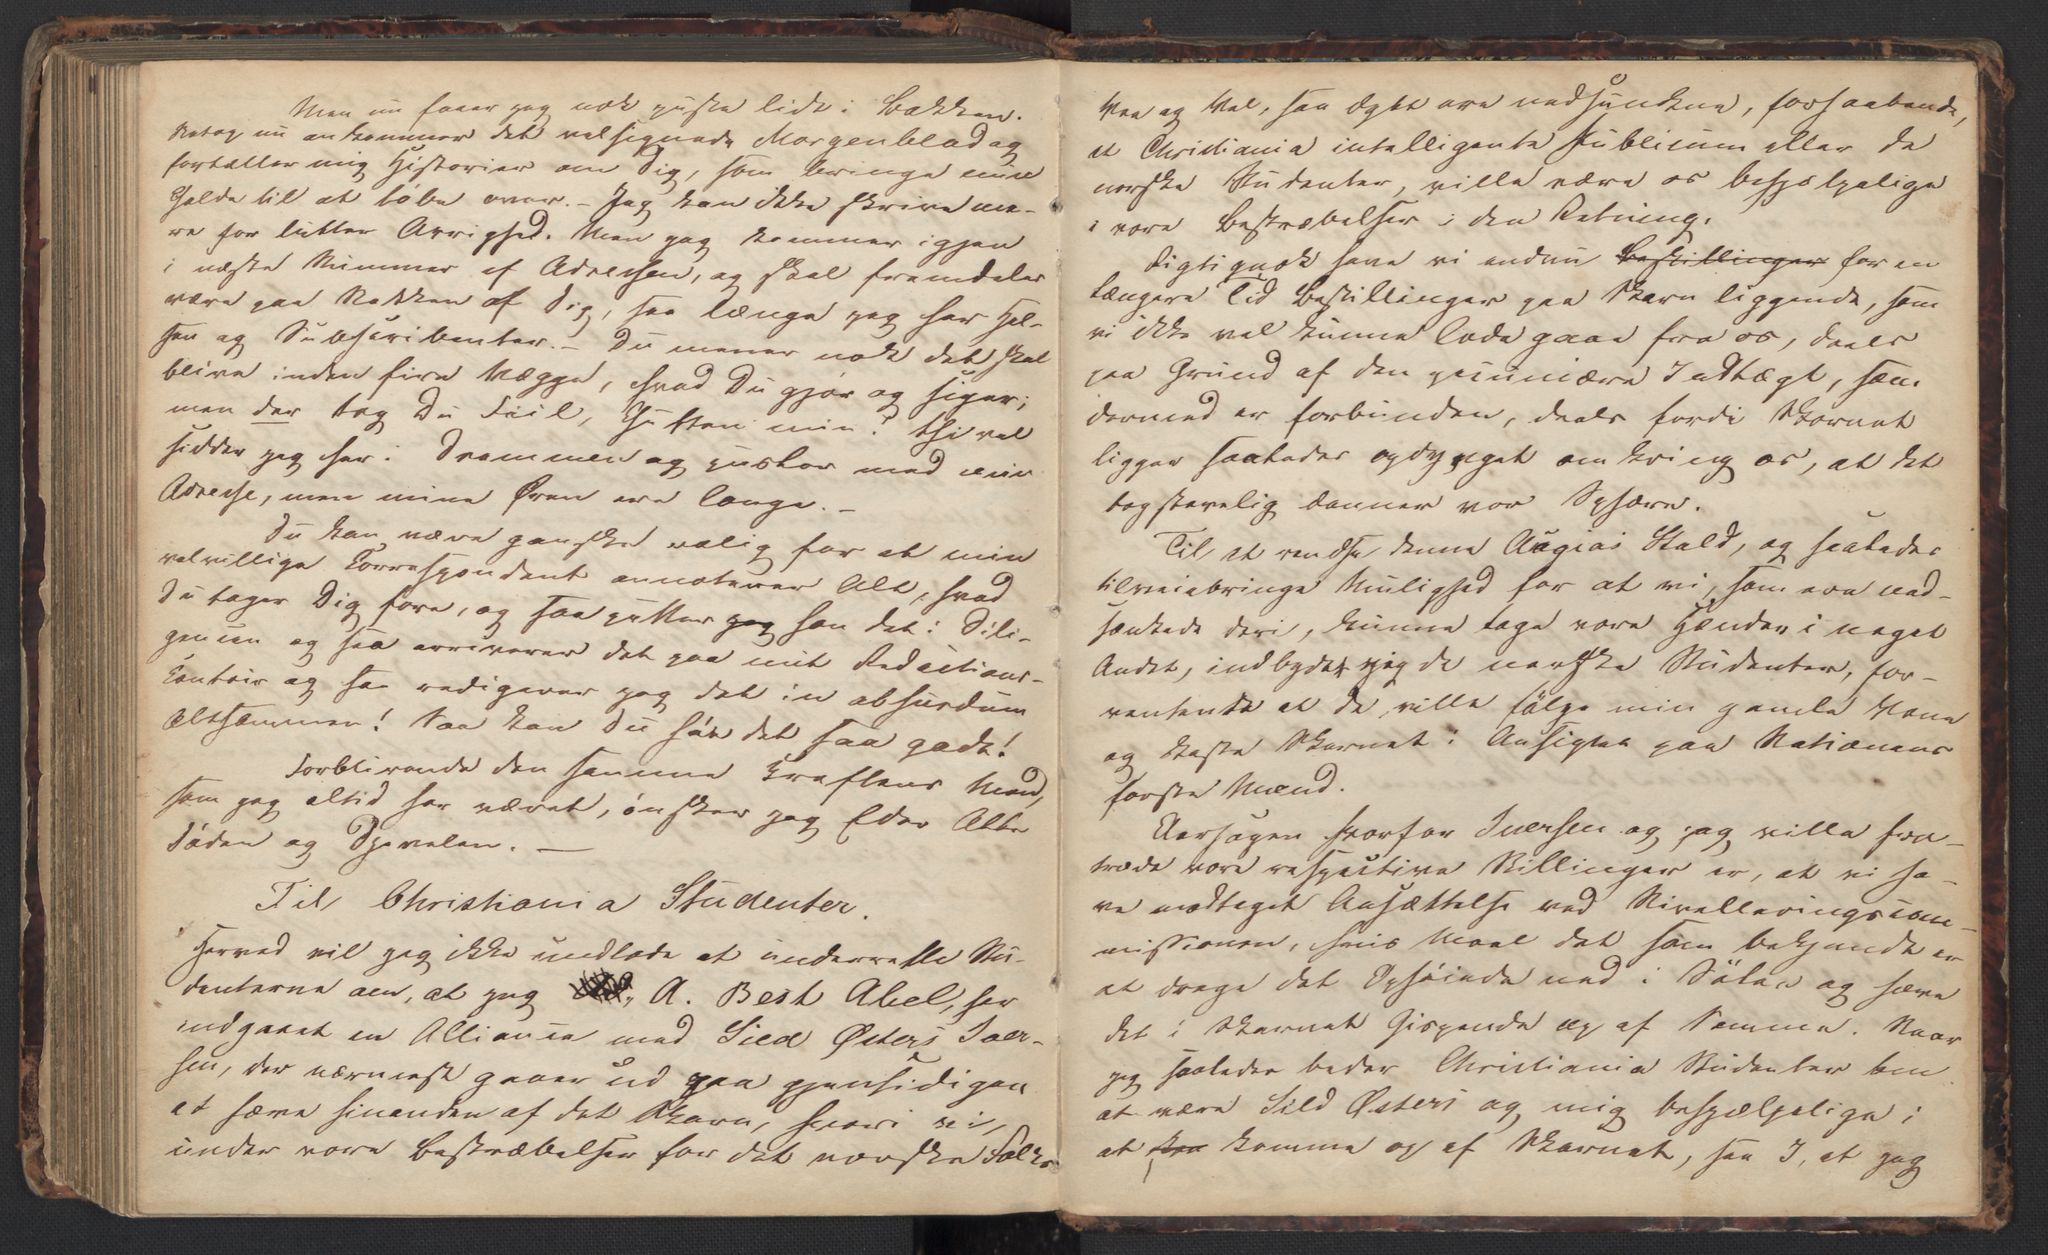 Men nu faaer jeg nok puste lidt i Bakken.
Netop nu ankommer det velsignede Morgenblad og
fortæller mig Historier om Dig, som bringe min
Galde til at løbe over. – Jeg kan ikke skrive me-
re for lutter Arrighed. Men jeg kommer igjen
i næste Nummer af Adressen, og skal fremdeles
være paa Nakken af Dig, saa længe jeg har Hel-
sen og Subscribenter. – Du mener nok det skal
blive inden fire Vægge, hvad Du gjør og siger;
men der tog Du Feil, Gutten min! thi vel
sidder jeg her i Drammen og puster med min
Adresse, men mine Øren ere lange. –
Du kan være ganske rolig for at min
velvillige Correspondent annoterer Alt, hvad
Du tager Dig fore, og saa putter jeg han det i Dili-
gencen og saa arriverer det paa mit Redactions-
Contoir og saa redigerer jeg det in absurdum
Altsammen! Saa kan Du ha det saa godt!
Forblivende den samme Kraftens Mand,
som jeg altid har været, ønsker jeg Eder Alle
Døden og Djevelen. —
Til Christiania Studenter.
Herved vil jeg ikke undlade at underrette Stu-
denterne om, at jeg A. Best Abel, har
indgaaet en Alliance med Sild Østers Iver-
sen, der nærmest gaaer ud paa gjensidigen
at hæve hinanden af det Skarn, hvori vi,
under vore Bestræbelser for det norske Folks
Vee og Vel, saa dybt ere nedsunkne, forhaabende,
at Christiania intelligente Publicum eller de
norske Studenter, ville være os behjælpelige
i vore Bestræbelser i den Retning.
Rigtignok have vi endnu Bestillinger for en
længere Tid Bestillinger paa Skarn liggende, som
vi ikke vel kunne lade gaae fra os, deels
paa Grund af den pecuniære Indtægt, som
dermed er forbunden, deels fordi Skarnet
ligger saaledes opdynget omkring os, at det
bogstavelig danner vor Sphære.
Til at rendse denne Augias Stald, og saaledes
tilveiebringe Mulighed for at vi, som ere ned-
sænkede deri, kunne tage vore Hænder i noget
Andet, indbyder jeg de norske Studenter, for-
ventende at de ville følge min gamle Vane
og kaste Skarnet i Ansigtet paa Nationens
første Mænd.
Aarsagen hvorfor Iversen og jeg ville fra-
træde vore respective Stillinger er, at vi ha-
ve modtaget Ansættelse ved Nivelleringscom-
missionen, hvis Maal det som bekjendt er
at drage det Ophøiede ned i Sølen og hæve
det i Skarnet Gispende op af Samme. Naar
jeg saaledes beder Christiania Studenter om
at være Sild Østers og mig behjælpelige i
at komme op af Skarnet, saa I, at jeg